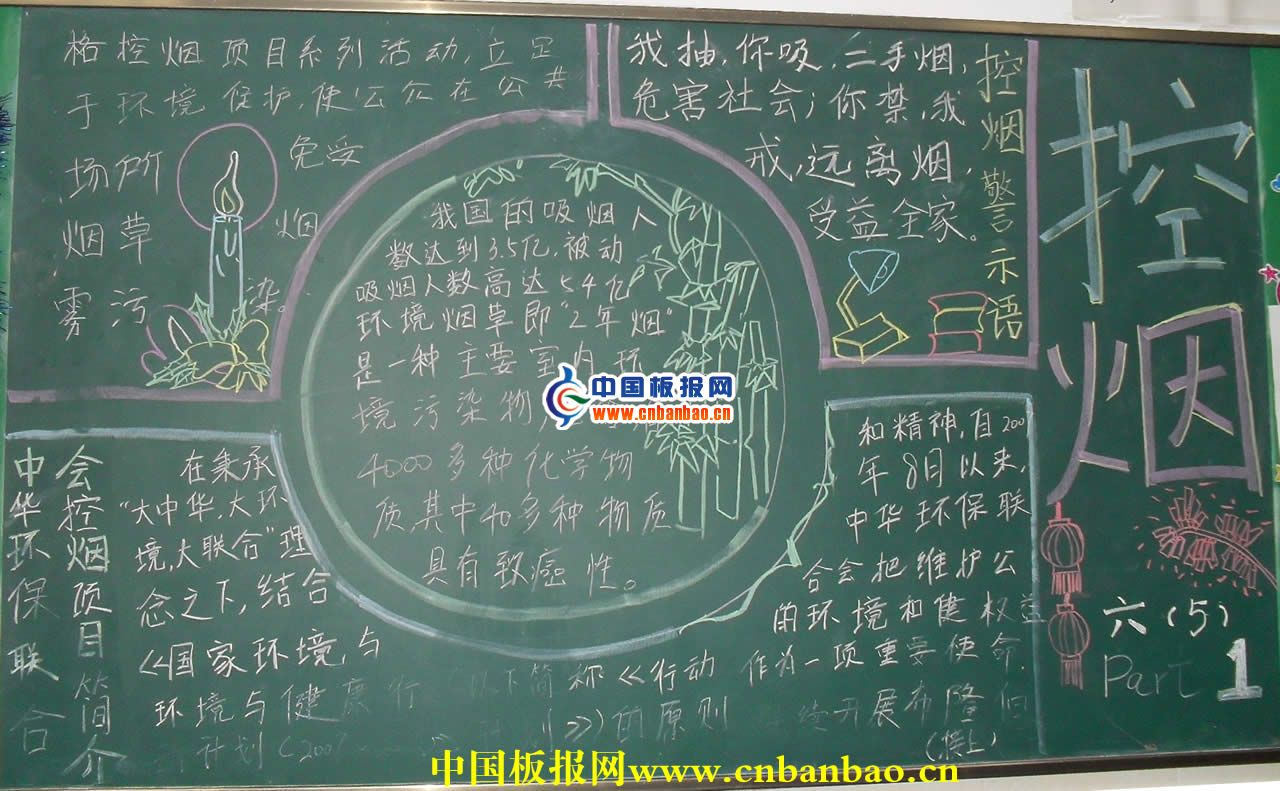 控烟
六(5)
Part 1
格控烟项目系列活动,立足
于环境保护,使公众在公共
场所 免受
烟草 烟
雾污 染。
我抽,你吸,二手烟,
危害社会;你禁,我
戒,远离烟,
受益全家。
控烟警示语
我国的吸烟人
数达到3.5亿,被动
吸烟人数高达5.4亿
环境烟草即“2年烟”
是一种主要室内环
境污染物,
4000多种化学物
质其中40多种物质
具有致癌性。
中国板报网
www.cnbanbao.cn
中华环保联合
会控烟项目简介
在秉承
“大中华,大环
境,大联合”理
念之下,结合
《国家环境与
环境与健康行
计划(200
以下简称《行动
划》)的原则
和精神,自200
年8日以来,
中华环保联
合会把维护公
的环境和健权益
作为一项重要使命.
续开展布隆伯
(接上)
中国板报网www.cnbanbao.cn